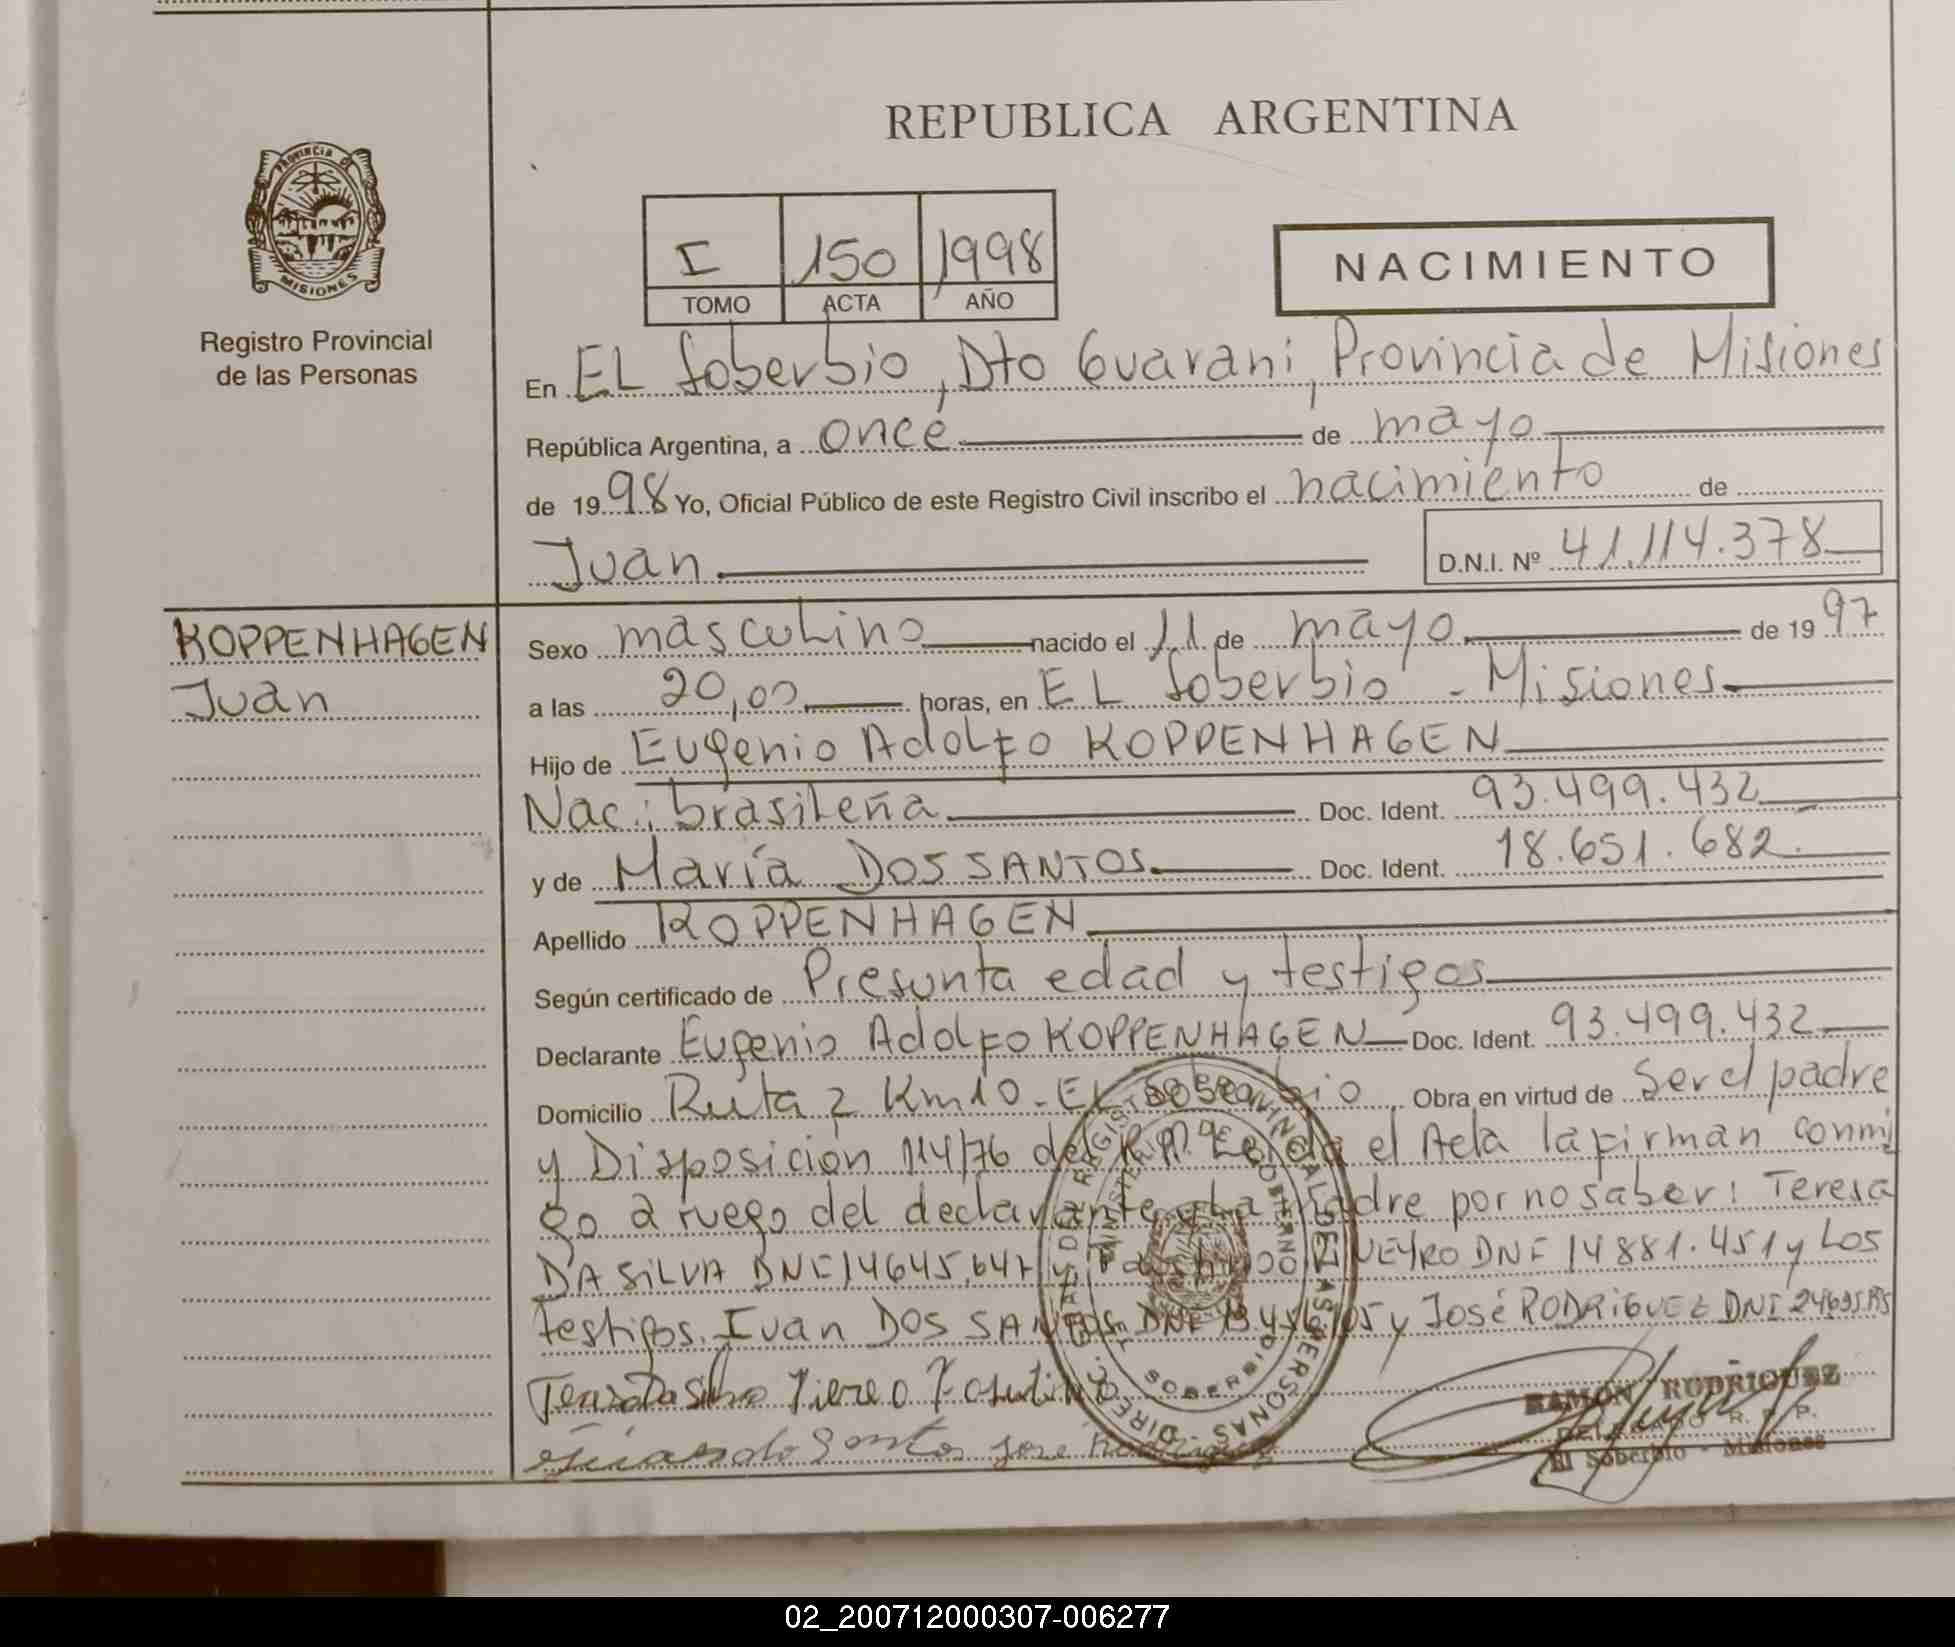 REPUBLICA ARGENTINA
PROVINCIA DE
MISIONES
Registro Provincial
de las Personas
I 150 1998
TOMO ACTA AÑO
NACIMIENTO
En EL Soberbio, Dto Guarani, Provincia de Misiones
República Argentina, a once de mayo
de 1998 Yo, Oficial Público de este Registro Civil inscribo el nacimiento de
Juan D.N.I. Nº 41.114.378
KOPPENHAGEN
Juan
Sexo masculino nacido el 11 de mayo de 1997
a las 20,00 horas, en EL Soberbio - Misiones
Hijo de Eugenio Adolfo KOPPENHAGEN
Nac.: brasileña Doc. Ident. 93.499.432
y de María DOS SANTOS Doc. Ident. 18.651.682.
Apellido KOPPENHAGEN
Según certificado de Presunta edad y testigos
Declarante Eugenio Adolfo KOPPENHAGEN Doc. Ident. 93.499.432
Domicilio Ruta 2 Km 10 - EL Soberbio Obra en virtud de Ser el padre
y Disposición 114/76 del el Acta la firman conmi
go a ruego del declarante y La madre por no saber: Teresa
DA SILVA DNI 14645.647 y DNI 14881.451 y Los
testigos. Ivan DOS SANTOS DNI y José RODRIGUEZ DNI
José Rodriguez
RAMÓN RODRIGUEZ
DELEGADO R. P. P.
El Soberbio - Misiones
02_200712000307-006277